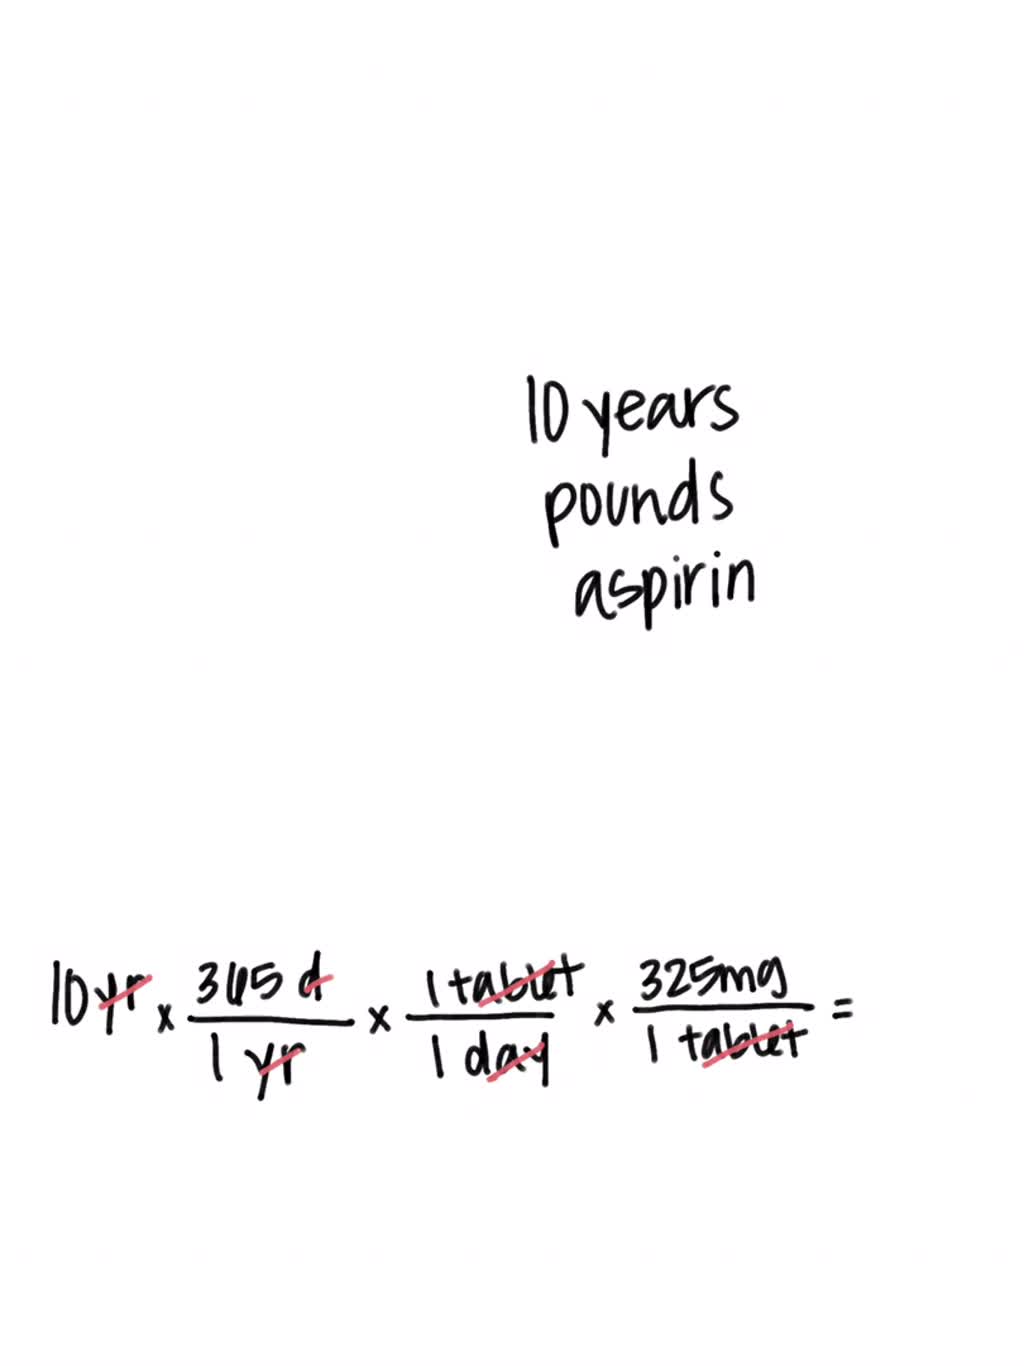 10 years
pounds
aspirin
10 yr x 365 d / 1 yr x 1 tablet / 1 day x 325mg / 1 tablet =